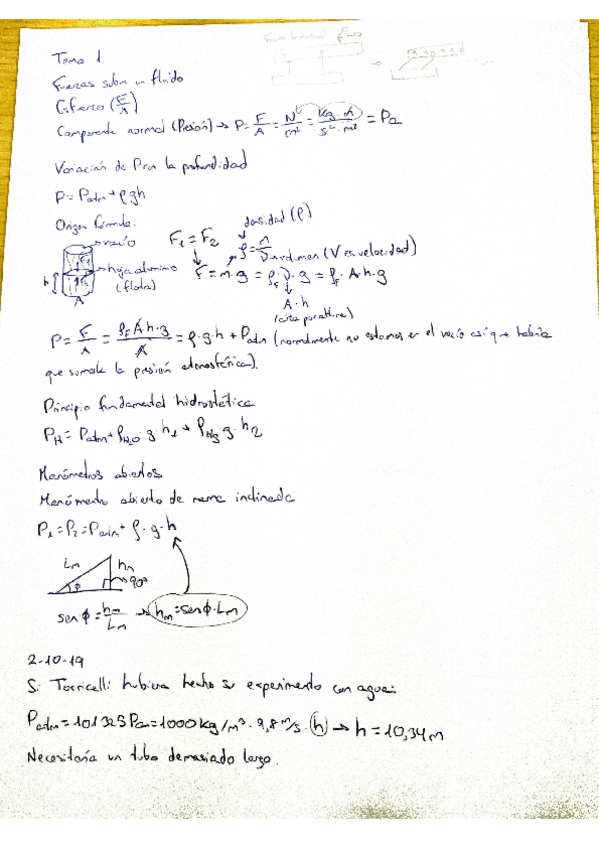 Tema 1
Fuerzas sobre un fluido
Esfuerzo (F/A)
Componente normal (Presión) → P = F/A = N/m² = kg·m/s²·m² = Pa
Variación de P con la profundidad
P = Patm + ρgh
Origen fórmula:
densidad (ρ)
vacío
F₁ = F₂
ρ = m/V → volumen (V es velocidad)
hoja aluminio
(flota)
F = m·g = ρF·V·g = ρF·A·h·g
h
A
A·h
P = F/A = ρF A h·g/A = ρ·g·h + Patm (normalmente no estamos en el vacío así que habría
que sumarle la presión atmosférica).
Principio fundamental hidrostática
PH = Patm + ρH₂O·g·h₁ + ρHg·g·h₂
Manómetros abiertos
Manómetro abierto de rama inclinada
P₁ = P₂ = Patm + ρ·g·h
Lm
hm
90º
ϕ
sen ϕ = hm/Lm → hm = senϕ·Lm
2-10-19
Si Torricelli hubiera hecho su experimento con agua:
Patm = 101325 Pa = 1000 kg/m³ · 9,8 m/s · h → h = 10,34 m
Necesitaría un tubo demasiado largo.